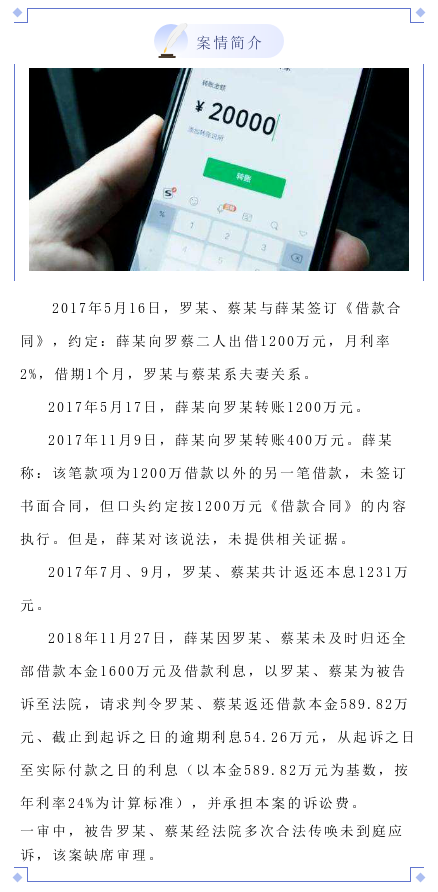 案情简介
转账金额
¥20000
添加转账说明
转账
S
%
1
2
3
2017年5月16日，罗某、蔡某与薛某签订《借款合
同》，约定：薛某向罗蔡二人出借1200万元，月利率
2%，借期1个月，罗某与蔡某系夫妻关系。
2017年5月17日，薛某向罗某转账1200万元。
2017年11月9日，薛某向罗某转账400万元。薛某
称：该笔款项为1200万借款以外的另一笔借款，未签订
书面合同，但口头约定按1200万元《借款合同》的内容
执行。但是，薛某对该说法，未提供相关证据。
2017年7月、9月，罗某、蔡某共计返还本息1231万
元。
2018年11月27日，薛某因罗某、蔡某未及时归还全
部借款本金1600万元及借款利息，以罗某、蔡某为被告
诉至法院，请求判令罗某、蔡某返还借款本金589.82万
元、截止到起诉之日的逾期利息54.26万元，从起诉之日
至实际付款之日的利息（以本金589.82万元为基数，按
年利率24%为计算标准），并承担本案的诉讼费。
一审中，被告罗某、蔡某经法院多次合法传唤未到庭应
诉，该案缺席审理。